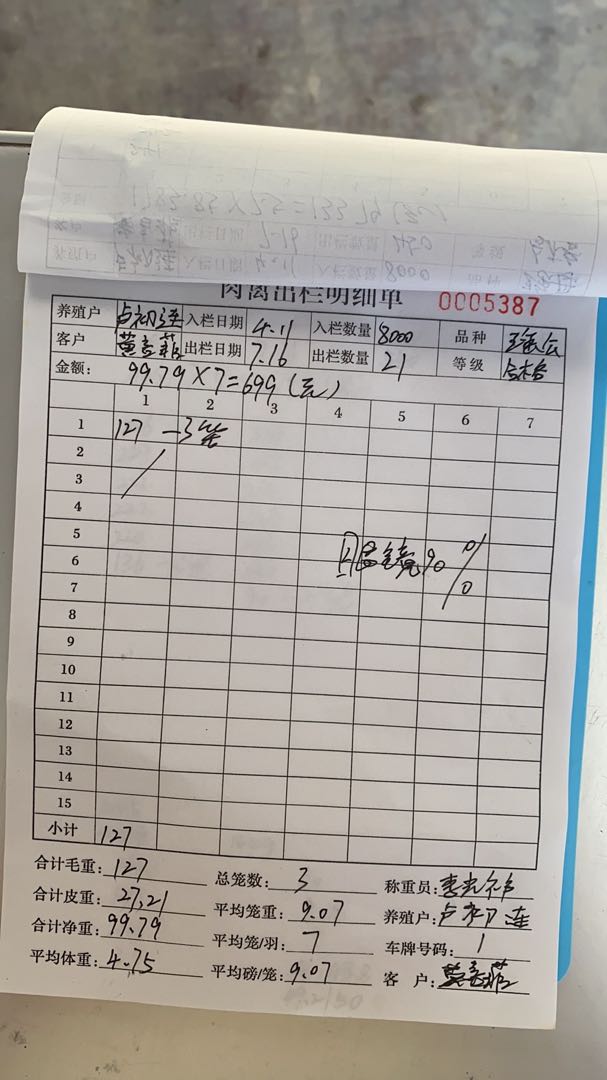 肉禽出栏明细单 0005387
养殖户 卢初连 入栏日期 4.11 入栏数量 8000 品种
客户 出栏日期 7.16 出栏数量 21 等级 合格
金额: 99.79×7=699(元)
1 2 3 4 5 6 7
1 127 -3笼
2
3
4
5
6 90%
7
8
9
10
11
12
13
14
15
小计 127
合计毛重: 127 总笼数: 3 称重员:
合计皮重: 27.21 平均笼重: 9.07 养殖户: 卢初连
合计净重: 99.79 平均笼/羽: 7 车牌号码: 1
平均体重: 4.75 平均磅/笼: 9.07 客 户: